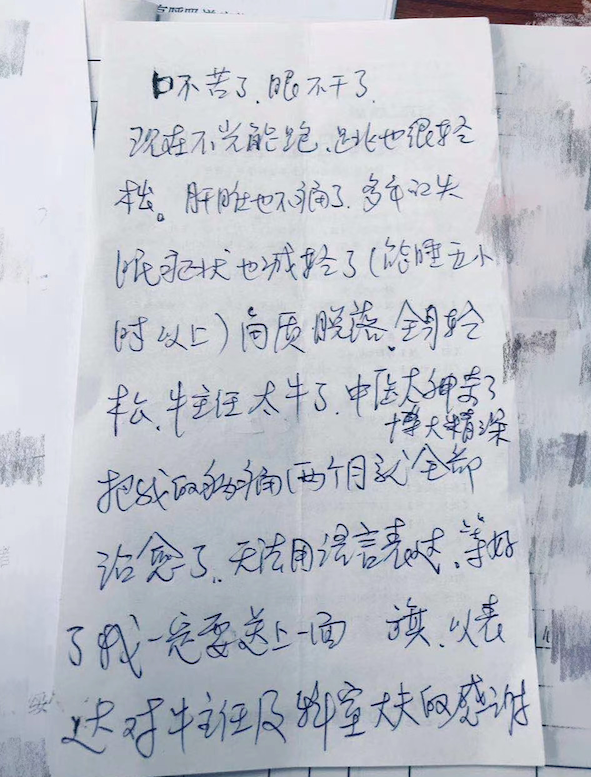 口不苦了.眼不干了.
现在不光能跑.也很轻
松。肝也不痛了.多年失
眠症状也减轻了(能睡五小
时以上)角质脱落.全身轻
松.牛主任太牛了.中医太神奇了
博大精深
把我的病痛(两个月就全部
治愈了.无法用语言表达.等好
了我一定要送上一面 旗.以表
达对牛主任及科室大夫的感谢